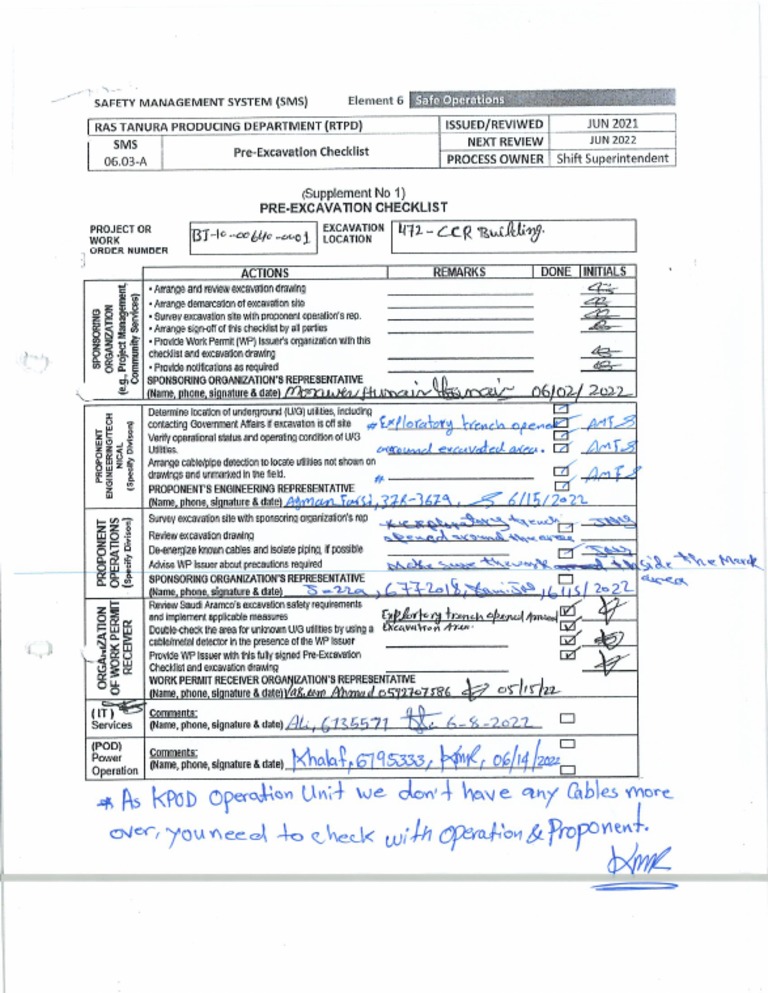 SAFETY MANAGEMENT SYSTEM (SMS) Element 6 Safe Operations
RAS TANURA PRODUCING DEPARTMENT (RTPD) ISSUED/REVIWED JUN 2021
SMS 06.03-A Pre-Excavation Checklist NEXT REVIEW JUN 2022
PROCESS OWNER Shift Superintendent
(Supplement No 1)
PRE-EXCAVATION CHECKLIST
PROJECT OR WORK ORDER NUMBER BI-10-00640-0001 EXCAVATION LOCATION 472-CCR Building.
ACTIONS REMARKS DONE INITIALS
SPONSORING ORGANIZATION (e.g., Project Management, Community Services)
• Arrange and review excavation drawing
• Arrange demarcation of excavation site
• Survey excavation site with proponent operation's rep.
• Arrange sign-off of this checklist by all parties
• Provide Work Permit (WP) Issuer's organization with this
checklist and excavation drawing
• Provide notifications as required
SPONSORING ORGANIZATION'S REPRESENTATIVE
(Name, phone, signature & date) 06/02/2022
PROPONENT ENGINEERING/TECHNICAL (Specify Divison)
Determine location of underground (U/G) utilities, including
contacting Government Affairs if excavation is off site * Exploratory trench opened
Verify operational status and operating condition of U/G
Utilities. arround excavated area.
Arrange cable/pipe detection to locate utilities not shown on
drawings and unmarked in the field.
PROPONENT'S ENGINEERING REPRESENTATIVE
(Name, phone, signature & date) Ayman Farsi, 378-3679, 6/15/2022
PROPONENT OPERATIONS (Specify Divison)
Survey excavation site with sponsoring organization's rep Exploratory trench
Review excavation drawing opened around the area
De-energize known cables and isolate piping, if possible
Advise WP Issuer about precautions required Make sure the work inside the Mark area
SPONSORING ORGANIZATION'S REPRESENTATIVE
(Name, phone, signature & date) 6772018, 6/15/2022
ORGANIZATION OF WORK PERMIT RECEIVER
Review Saudi Aramco's excavation safety requirements
and implement applicable measures Exploratory trench opened Around
Double-check the area for unknown U/G utilities by using a Excavation Area.
cable/metal detector in the presence of the WP Issuer
Provide WP Issuer with this fully signed Pre-Excavation
Checklist and excavation drawing
WORK PERMIT RECEIVER ORGANIZATION'S REPRESENTATIVE
(Name, phone, signature & date) Waseem Ahmad 0592707586 05/15/22
(IT) Services
Comments:
(Name, phone, signature & date) Ali, 6735571 6-8-2022
(POD) Power Operation
Comments:
(Name, phone, signature & date) Khalaf, 6795333, KMR, 06/14/2022
* As KPOD Operation Unit we don't have any Cables more
over, you need to check with Operation & Proponent.
KMR